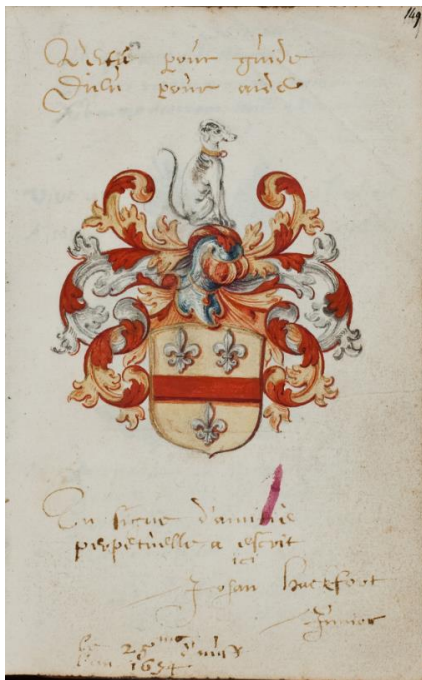 149
Vertu pour guide
Dieu pour aide
En signe d'amitie
perpetuelle a escrit
ici
Johan Hackfort
Junior
ce 25
l'an 1634